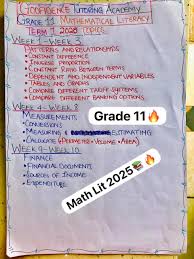 GODFIDENCE TUTORING ACADEMY
GRADE 11 MATHEMATICAL LITERACY
TERM 1 2025 TOPICS
WEEK 1 - WEEK 3
• PATTERNS AND RELATIONSHIPS
• CONSTANT DIFFERENCE
• INVERSE PROPORTION
• CONSTANT RATIO BETWEEN TERMS
• DEPENDENT AND INDEPENDENT VARIABLES
• TABLES AND GRAPHS
• COMPARE DIFFERENT TARIFF SYSTEMS
• COMPARE DIFFERENT BANKING OPTIONS
WEEK 4 - WEEK 8
MEASUREMENTS
• CONVERSIONS
• MEASURING & ESTIMATING
• CALCULATE (PERIMETER, VOLUME, AREA)
Grade 11🔥
WEEK 9 - WEEK 10
FINANCE
• FINANCIAL DOCUMENTS
• SOURCES OF INCOME
• EXPENDITURE
Math Lit 2025📚🔥